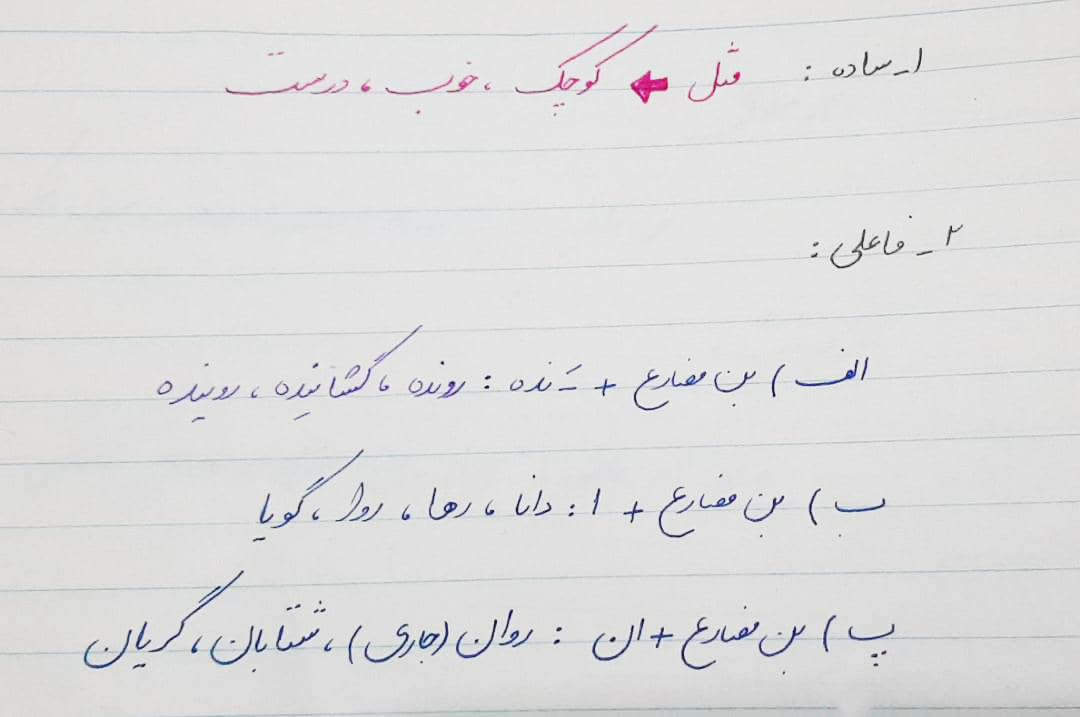 ۱ـ ساده : مثل ← کوچک ، خوب ، درست
۲ـ فاعلی :
الف ) بن مضارع + ـَ نده : رونده ، گشاینده ، روینده
ب ) بن مضارع + ا : دانا ، رها ، روا ، گویا
پ ) بن مضارع + ان : روان (جاری) ، شتابان ، گریان